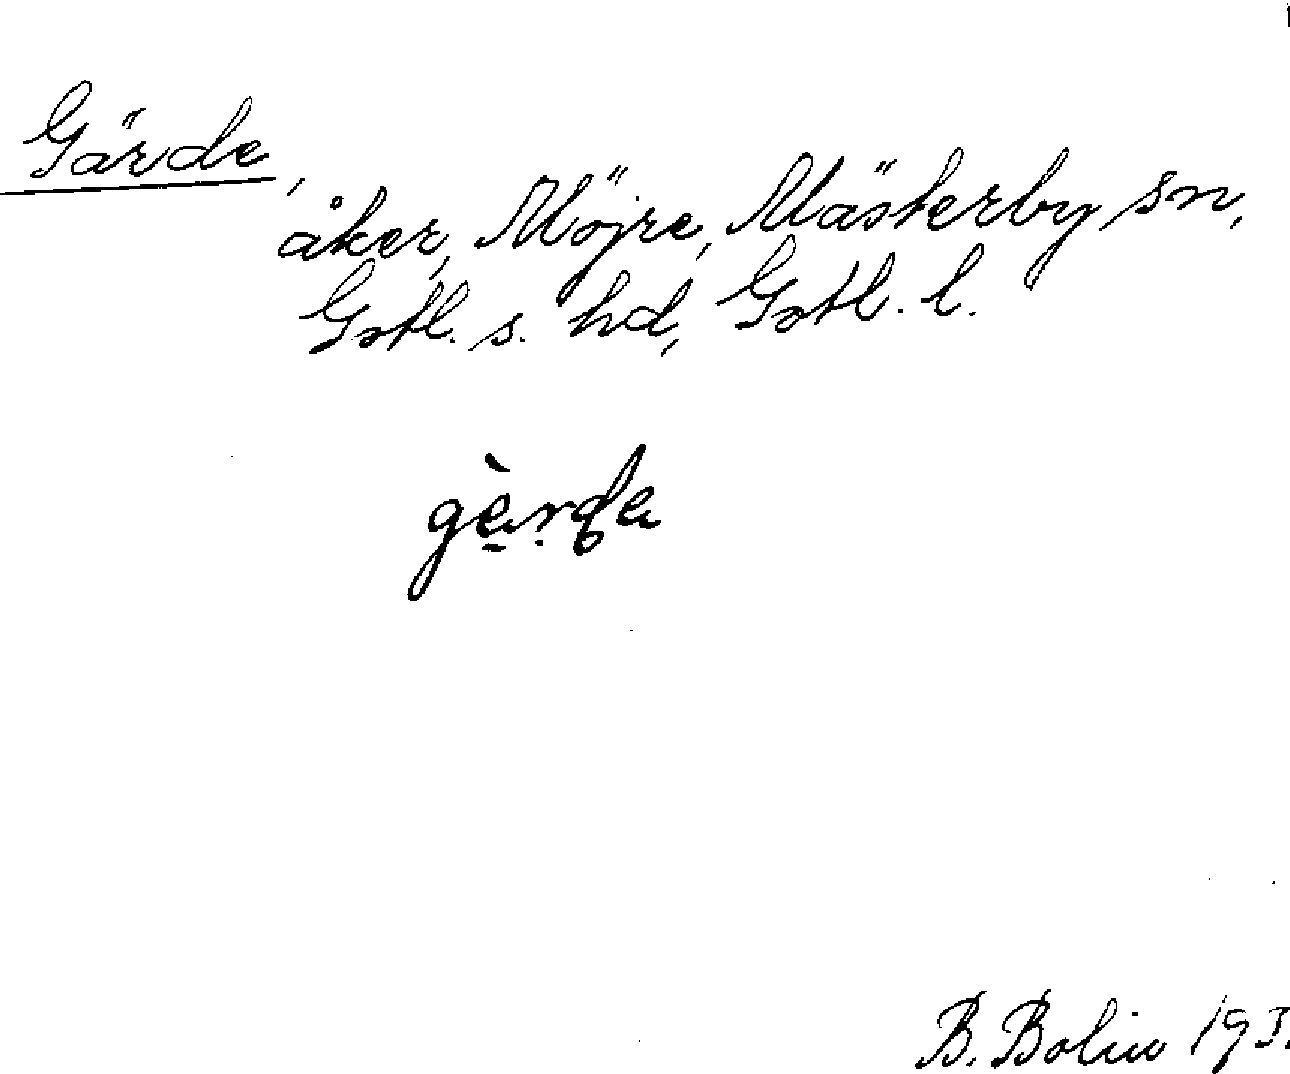 Gärde,
åker, Möjre, Mästerby sn,
Gotl. s. hd, Gotl. l.
gärda
B. Bolin 193